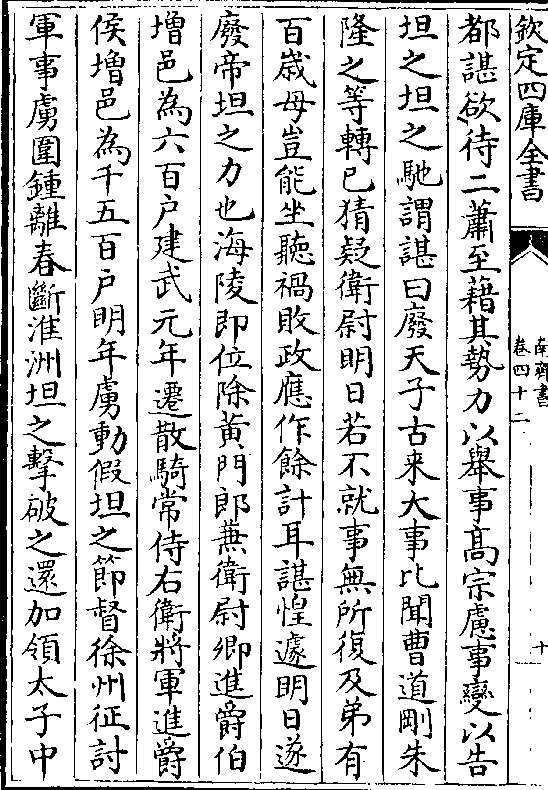 欽定四庫全書
南齊書
卷四十二
十
都諶欲待二蕭至藉其勢力以舉事髙宗慮事變以告
坦之坦之馳謂諶曰廢天子古来大事比聞曹道剛朱
隆之等轉已猜疑衛尉明日若不就事無所復及弟有
百歳母豈能坐聽禍敗政應作餘計耳諶惶遽明日遂
廢帝坦之力也海陵即位除黄門郎兼衛尉卿進爵伯
増邑為六百户建武元年遷散騎常侍右衛將軍進爵
侯増邑為千五百户明年虜動假坦之節督徐州征討
軍事虜圍鍾離春斷淮洲坦之擊破之還加領太子中